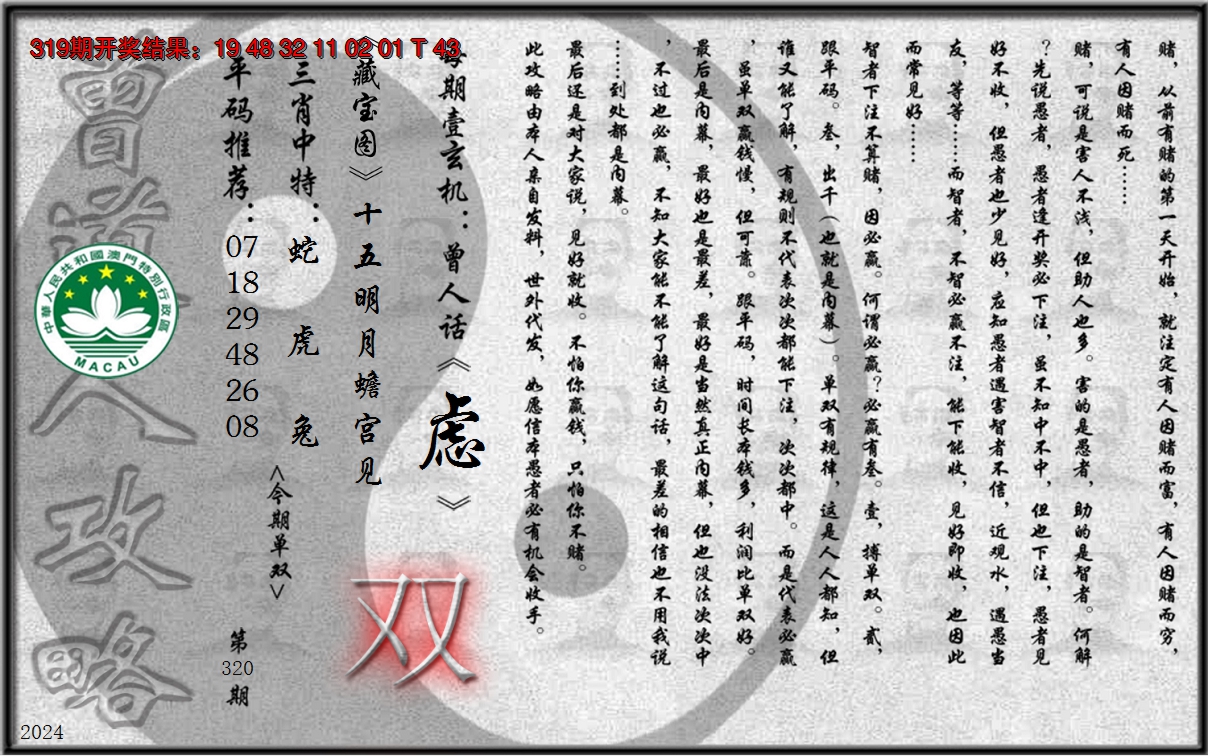 319期开奖结果：19 48 32 11 02 01 T 43
赌，从前有赌的第一天开始，就注定有人因赌而富，有人因赌而穷，
有人因赌而死……
赌，可说是害人不浅，但助人也多。害的是愚者，助的是智者。何解
？先说愚者，愚者逢开奖必下注，虽不知中不中，但也下注，愚者见
好不收，但愚者也少见好，应知愚者遇害智者不信，近观水，遇愚当
友，等等……而智者，不智必赢不注，能下能收，见好即收，也因此
而常见好……
智者下注不算赌，因必赢。何谓必赢？必赢有叁。壹，搏单双。贰，
跟平码。叁，出千（也就是内幕）。单双有规律，这是人人都知，但
谁又能了解，有规则不代表次次都能下注，次次都中。而是代表必赢
，虽单双赢钱慢，但可靠。跟平码，时间长本钱多，利润比单双好。
最后是内幕，最好也是最差，最好是当然真正内幕，但也没法次次中
，不过也必赢，不知大家能不能了解这句话，最差的相信也不用我说
……到处都是内幕。
最后还是对大家说，见好就收。不怕你赢钱，只怕你不赌。
此攻略由本人亲自发料，世外代发，如愿信本愚者必有机会收手。
每期壹玄机：曾人话《虑》
《藏宝图》十五明月蟾宫见
双
三肖中特：蛇 虎 兔
<今期单双>
平码推荐：
07
18
29
48
26
08
第
320
期
曾道人攻略
中華人民共和國澳門特別行政區
MACAU
2024